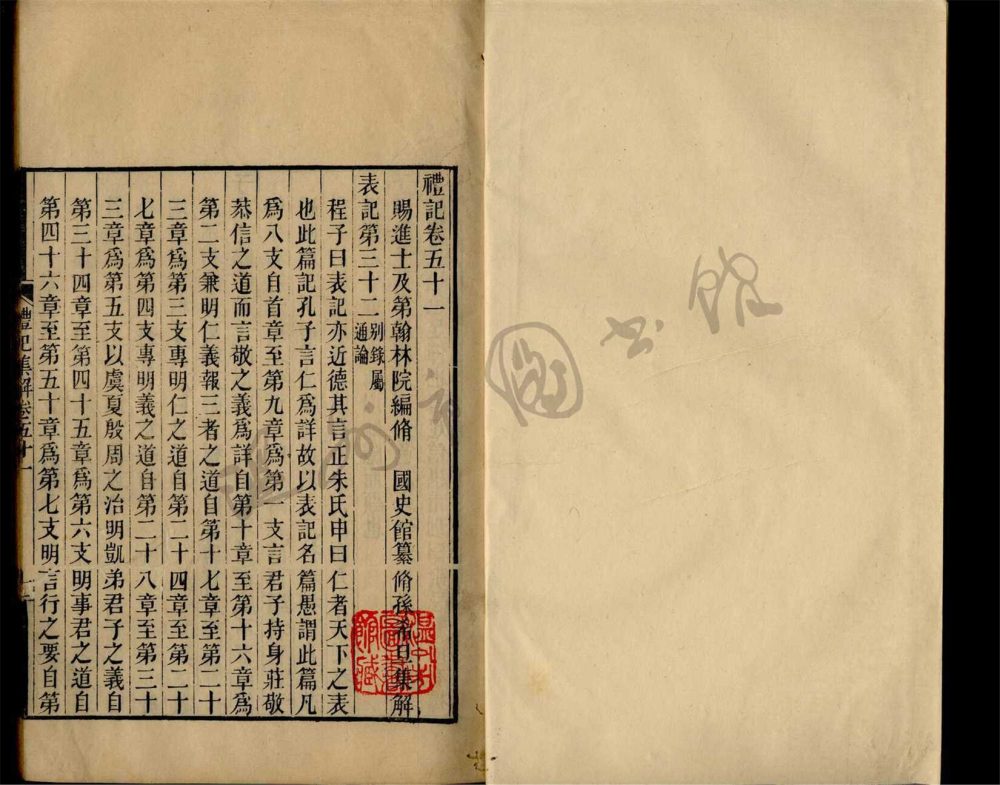 禮記卷五十一
賜進士及第翰林院編脩　國史館纂脩孫希旦集解
表記第三十二別錄屬
通論
程子曰表記亦近德其言正朱氏申曰仁者天下之表
也此篇記孔子言仁爲詳故以表記名篇愚謂此篇凡
爲八支自首章至第九章爲第一支言君子持身莊敬
恭信之道而言敬之義爲詳自第十章至第十六章爲
第二支兼明仁義報三者之道自第十七章至第二十
三章爲第三支專明仁之道自第二十四章至第二十
七章爲第四支專明義之道自第二十八章至第三十
三章爲第五支以虞夏殷周之治明凱弟君子之義自
第三十四章至第四十五章爲第六支明事君之道自
第四十六章至第五十章爲第七支明言行之要自第
禮記集解卷五十一
一
溫州市圖書館藏
溫州市圖書館